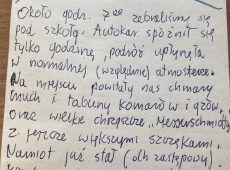 Około godz. 7⁰⁰ zebraliśmy się
pod szkołą. Autokar spóźnił się
tylko godzinę, podróż upłynęła
w normalnej (względnie) atmosferze.
Na miejscu powitały nas chmary
much i tabuny komarów i gzów,
oraz wielkie chrząszcze "Messerschmidty"
z jeszcze większymi szczękami.
Namiot już stał (dh zastępowy)